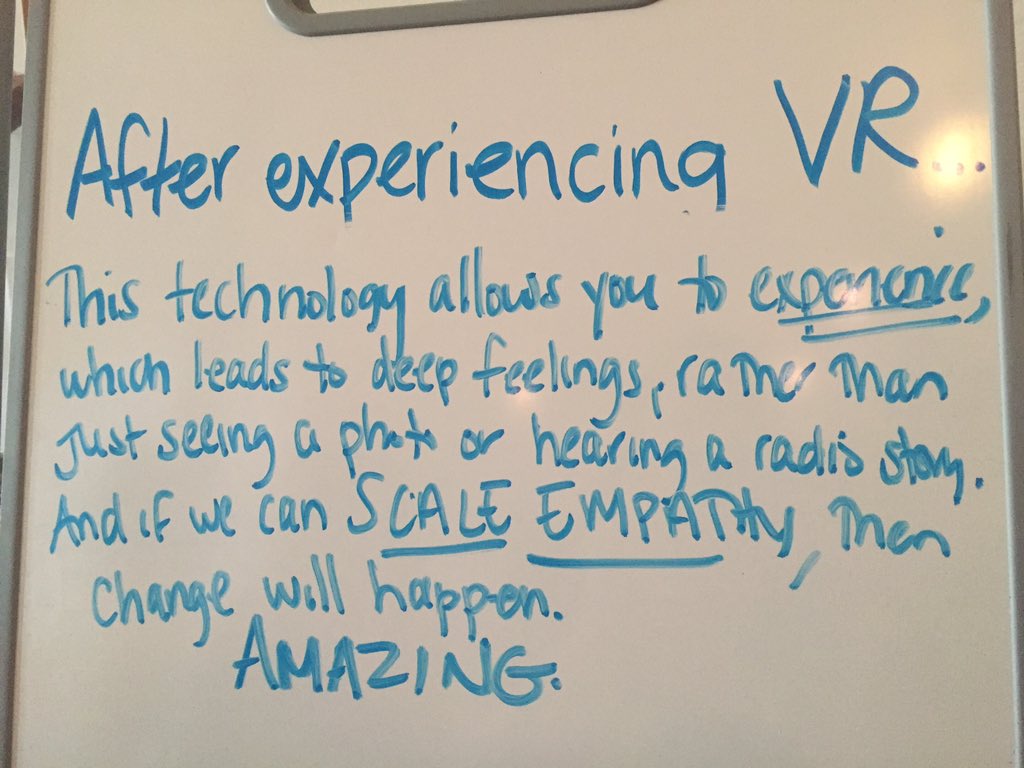 After experiencing VR...
This technology allows you to experience,
which leads to deep feelings, rather than
just seeing a photo or hearing a radio story.
And if we can SCALE EMPATHY, then
change will happen.
AMAZING.